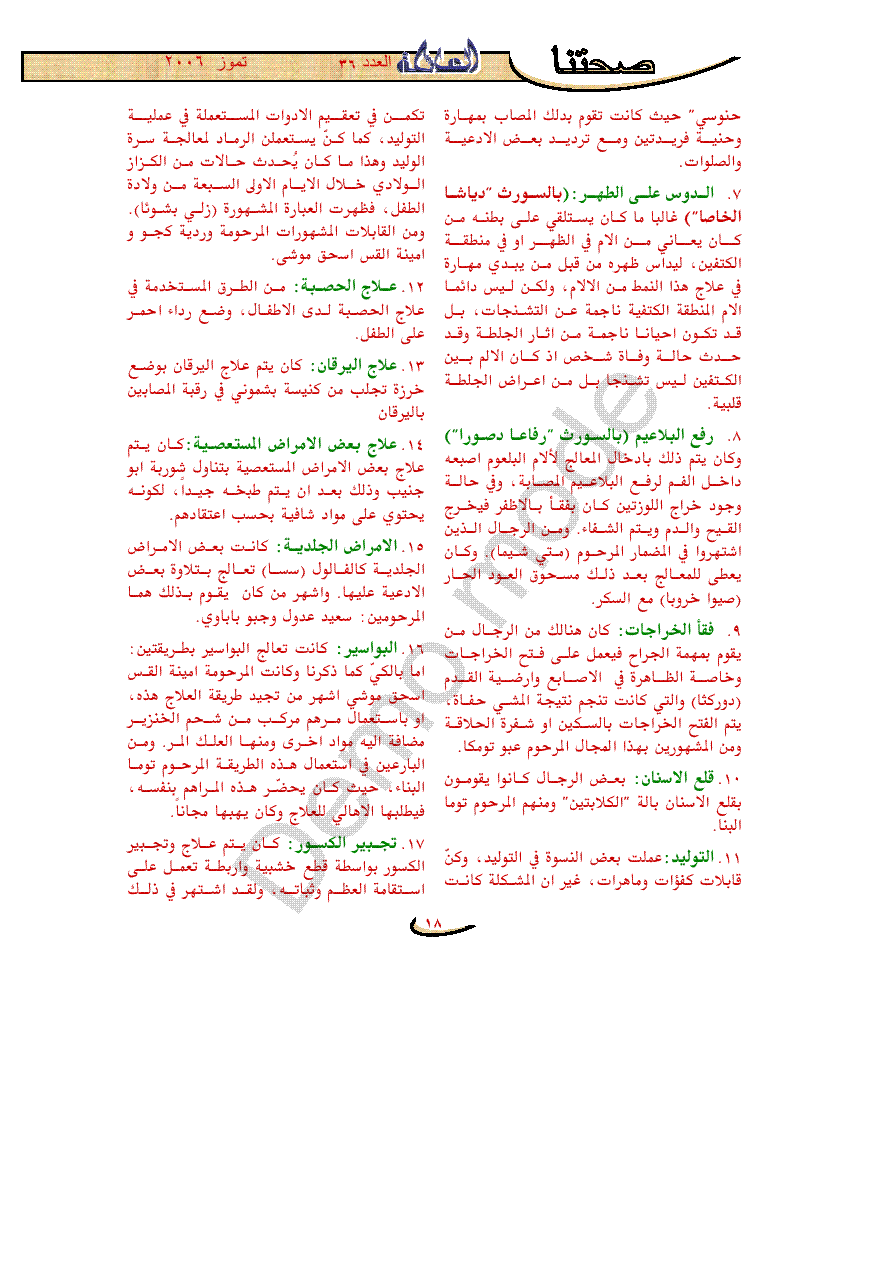 صحتنا
العدد ٣٦
تموز ٢٠٠٦
حنوسي" حيث كانت تقوم بدلك المصاب بمهارة
وحنية فريدتين ومع ترديد بعض الادعية
والصلوات.
٧. الدوس على الطهر:(بالسورث "دياشا
الخاصا") غالبا ما كان يستلقي على بطنه من
كان يعاني من الام في الظهر او في منطقة
الكتفين، ليداس ظهره من قبل من يبدي مهارة
في علاج هذا النمط من الالام، ولكن ليس دائما
الام المنطقة الكتفية ناجمة عن التشنجات، بل
قد تكون احيانا ناجمة من اثار الجلطة وقد
حدث حالة وفاة شخص اذ كان الالم بين
الكتفين ليس تشنجا بل من اعراض الجلطة
قلبية.
٨. رفع البلاعيم (بالسورث "رفاعا دصورا")
وكان يتم ذلك بادخال المعالج لألام البلعوم اصبعه
داخل الفم لرفع البلاعيم المصابة، وفي حالة
وجود خراج اللوزتين كان يفقأ بالاظفر فيخرج
القيح والدم ويتم الشفاء. ومن الرجال الذين
اشتهروا في المضمار المرحوم (متي شيما). وكان
يعطى للمعالج بعد ذلك مسحوق العود الحار
(صيوا خروبا) مع السكر.
٩. فقأ الخراجات: كان هنالك من الرجال من
يقوم بمهمة الجراح فيعمل على فتح الخراجات
وخاصة الظاهرة في الاصابع وارضية القدم
(دوركثا) والتي كانت تنجم نتيجة المشي حفاة،
يتم الفتح الخراجات بالسكين او شفرة الحلاقة
ومن المشهورين بهذا المجال المرحوم عبو تومكا.
١٠. قلع الاسنان: بعض الرجال كانوا يقومون
بقلع الاسنان بالة "الكلابتين" ومنهم المرحوم توما
البنا.
١١. التوليد:عملت بعض النسوة في التوليد، وكنّ
قابلات كفؤات وماهرات، غير ان المشكلة كانت
تكمن في تعقيم الادوات المستعملة في عملية
التوليد، كما كنّ يستعملن الرماد لمعالجة سرة
الوليد وهذا ما كان يُحدث حالات من الكزاز
الولادي خلال الايام الاولى السبعة من ولادة
الطفل، فظهرت العبارة المشهورة (زلي بشوئا).
ومن القابلات المشهورات المرحومة وردية كجو و
امينة القس اسحق موشى.
١٢. علاج الحصبة: من الطرق المستخدمة في
علاج الحصبة لدى الاطفال، وضع رداء احمر
على الطفل.
١٣. علاج اليرقان: كان يتم علاج اليرقان بوضع
خرزة تجلب من كنيسة بشموني في رقبة المصابين
باليرقان
١٤. علاج بعض الامراض المستعصية:كان يتم
علاج بعض الامراض المستعصية بتناول شوربة ابو
جنيب وذلك بعد ان يتم طبخه جيداً، لكونه
يحتوي على مواد شافية بحسب اعتقادهم.
١٥. الامراض الجلدية: كانت بعض الامراض
الجلدية كالفالول (سسا) تعالج بتلاوة بعض
الادعية عليها. واشهر من كان يقوم بذلك هما
المرحومين: سعيد عدول وجبو باباوي.
١٦. البواسير: كانت تعالج البواسير بطريقتين:
اما بالكيّ كما ذكرنا وكانت المرحومة امينة القس
اسحق موشي اشهر من تجيد طريقة العلاج هذه،
او باستعمال مرهم مركب من شحم الخنزير
مضافة اليه مواد اخرى ومنها العلك المر. ومن
البارعين في استعمال هذه الطريقة المرحوم توما
البناء، حيث كان يحضّر هذه المراهم بنفسه،
فيطلبها الاهالي للعلاج وكان يهبها مجاناً.
١٧. تجبير الكسور: كان يتم علاج وتجبير
الكسور بواسطة قطع خشبية واربطة تعمل على
استقامة العظم وثباته، ولقد اشتهر في ذلك
١٨
Demo mode